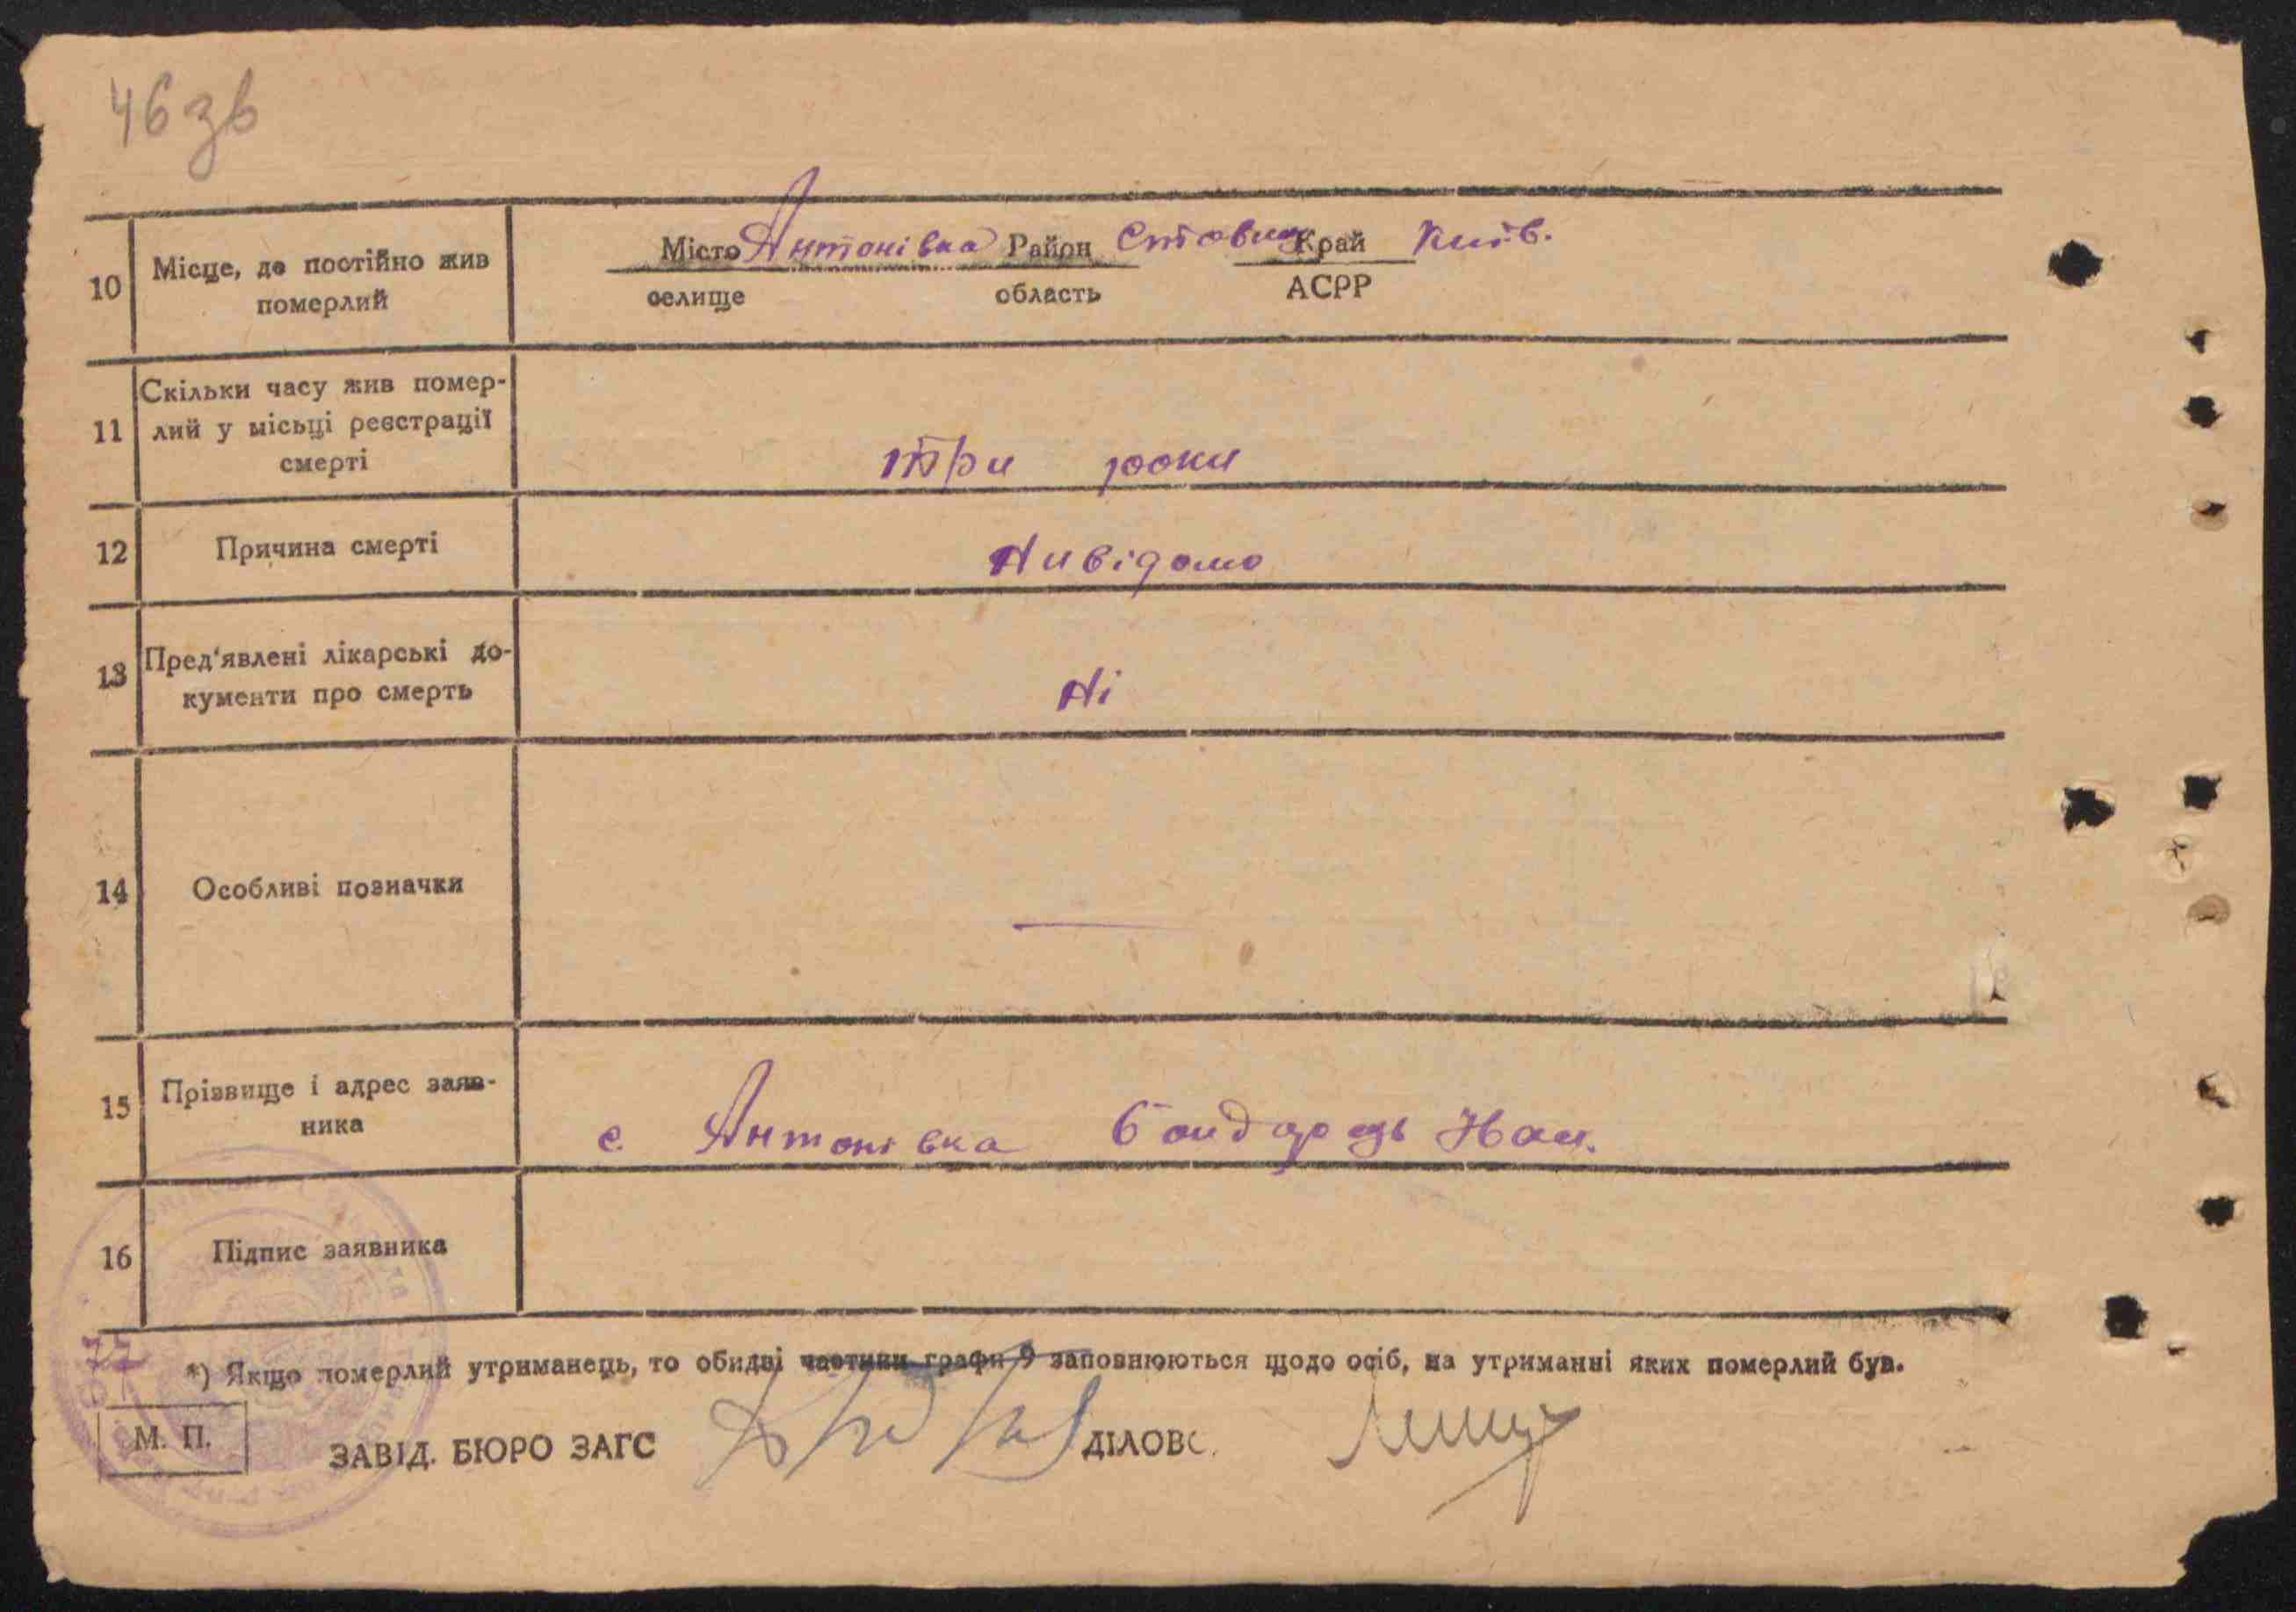 46 зв
Місто Антонівка Район Ставищ Край Київ.
10 Місце, де постійно жив
померлий
селище область АСРР
Скільки часу жив помер-
11 лий у місьці реєстрації
смерті
три роки
12 Причина смерті Нивідомо
13 Пред'явлені лікарські до-
кументи про смерть
Ні
14 Особливі позначки —
15 Прізвище і адрес заяв-
ника
с. Антонівка Бондарець Нан.
16 Підпис заявника
*) Якщо померлий утриманець, то обидві частини графи 9 заповнюються щодо осіб, на утриманні яких померлий був.
М. П.
ЗАВІД. БЮРО ЗАГС ДІЛОВС.